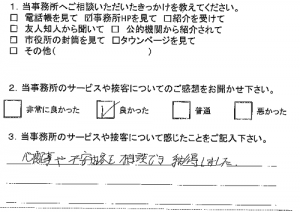 1. 当事務所へご相談いただいたきっかけを教えてください。
□ 電話帳を見て ☑事務所HPを見て □紹介を受けて
□ 友人知人から聞いて □ 公的機関から紹介されて
□ 市役所の封筒を見て □タウンページを見て
□ その他( )
2. 当事務所のサービスや接客についてのご感想をお聞かせ下さい。
□ 非常に良かった ☑ 良かった □ 普通 □ 悪かった
3. 当事務所のサービスや接客について感じたことをご記入下さい。
心配事や不安を相談でき 納得しました。